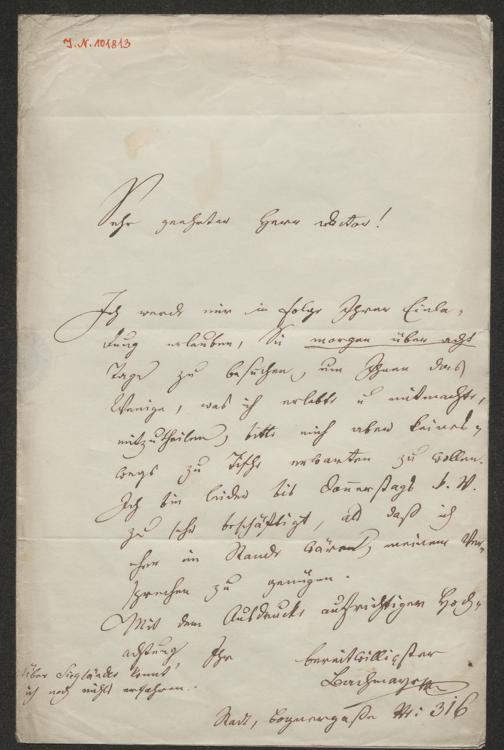 J. N. 101813
Sehr geehrter Herr Doctor!
Ich werde mir in Folge Ihrer Einla-
dung erlauben, Sie morgen über acht
Tage zu besuchen, um Ihnen das
Wenige, was ich erlebte u mitmachte,
mitzutheilen, bitte mich aber keines-
wegs zu Tische erwarten zu wollen.
Ich bin leider bis Donnerstags k. W.
zu sehr beschäftigt, als daß ich
eher im Stande wäre, meinem Ver-
sprechen zu genügen.
Mit dem Ausdrucke aufrichtiger Hoch-
achtung Ihr bereitwilligster
Bachmayr
über konnt'
ich noch nichts erfahren.
Stadt, Bognergasse Nr: 316